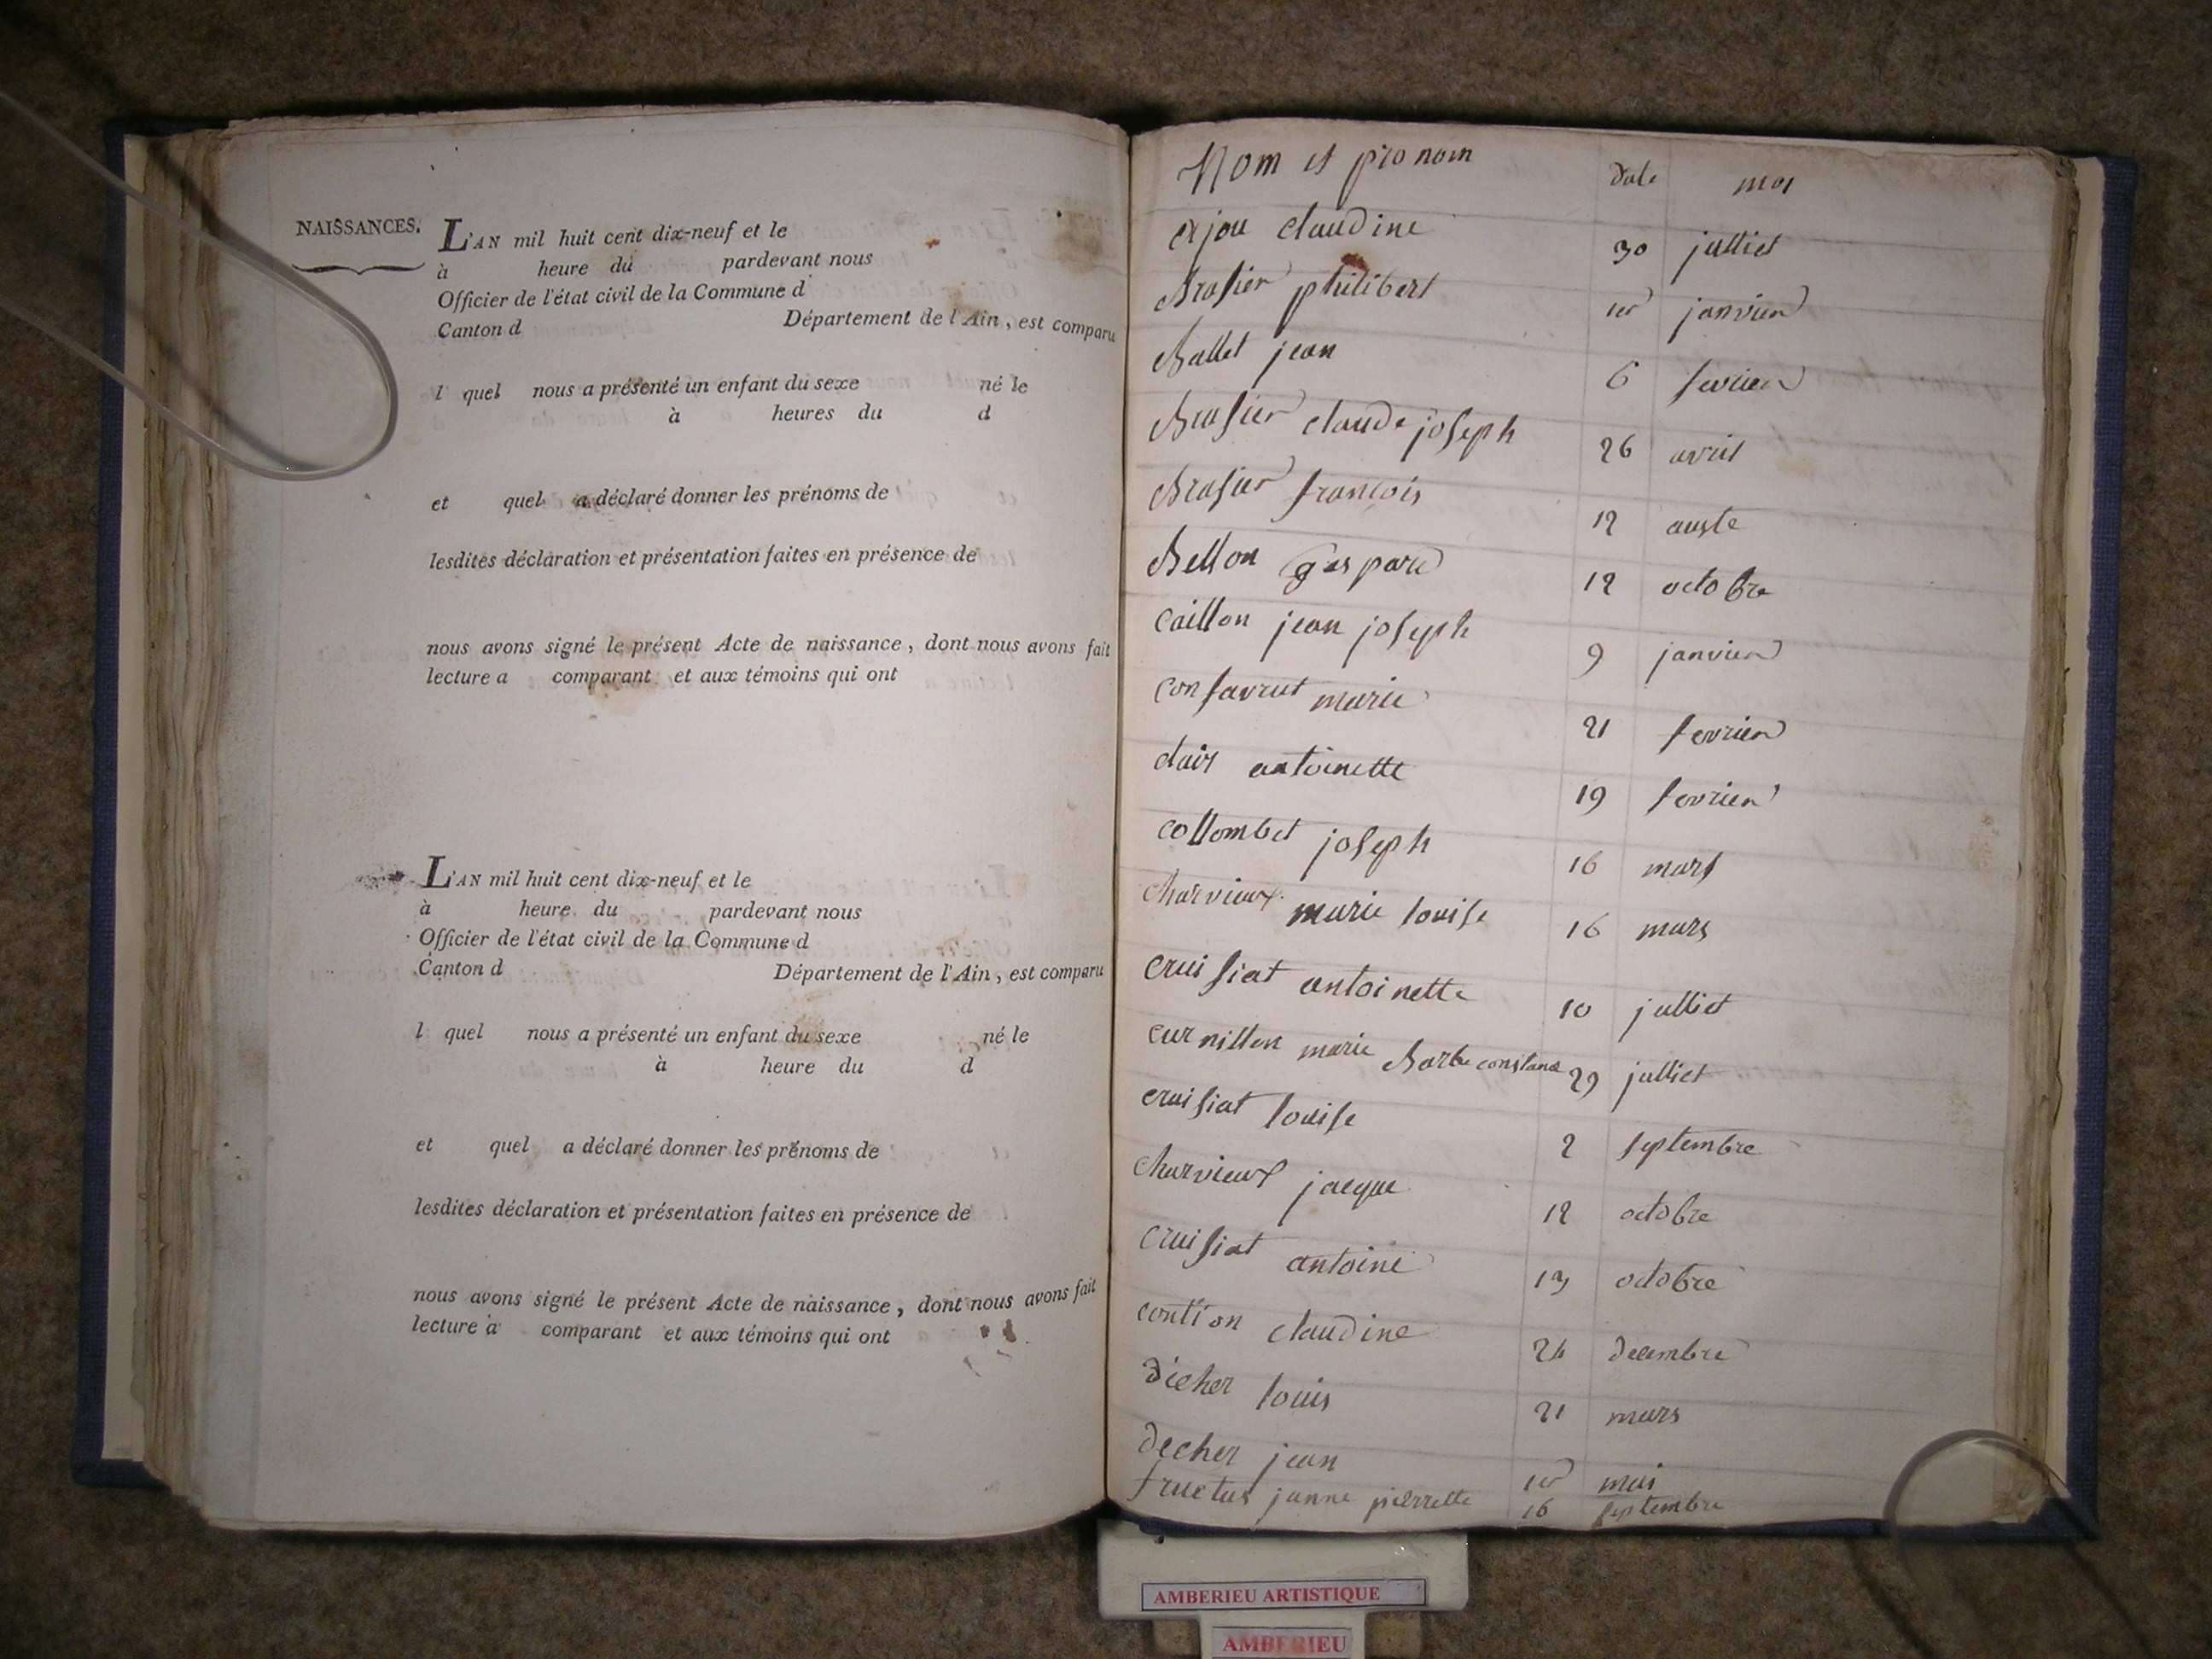 NAISSANCES.
L'AN mil huit cent dix-neuf et le
à heure du pardevant nous
Officier de l'état civil de la Commune d
Canton d Département de l'Ain, est comparu
l quel nous a présenté un enfant du sexe né le
à heures du d
et quel a déclaré donner les prénoms de
lesdites déclaration et présentation faites en présence de
nous avons signé le présent Acte de naissance, dont nous avons fait
lecture a comparant et aux témoins qui ont
L'AN mil huit cent dix-neuf et le
à heure du pardevant nous
Officier de l'état civil de la Commune d
Canton d Département de l'Ain, est comparu
l quel nous a présenté un enfant du sexe né le
à heure du d
et quel a déclaré donner les prénoms de
lesdites déclaration et présentation faites en présence de
nous avons signé le présent Acte de naissance, dont nous avons fait
lecture à comparant et aux témoins qui ont
Nom et pronom date moi
claudine 30 julliet
Brasier philibert 1er janvier
Ballet jean 6 fevrier
Brasier claude joseph 26 avril
Brasier françois 12 auste
Bellon gaspard 12 octobre
caillon jean joseph 9 janvier
confavrut marie 21 fevrier
clair antoinette 19 fevrier
collombet joseph 16 mars
charvieux marie louise 16 mars
cruisiat antoinette 10 julliet
curnillon marie Barbe constance 29 julliet
cruisiat louise 2 septembre
charvieux jacque 12 octobre
cruisiat antoine 13 octobre
contion claudine 24 decembre
dicher louis 21 mars
decher jean 1er mai
fructus janne pierrette 16 septembre
AMBERIEU ARTISTIQUE
AMBERIEU